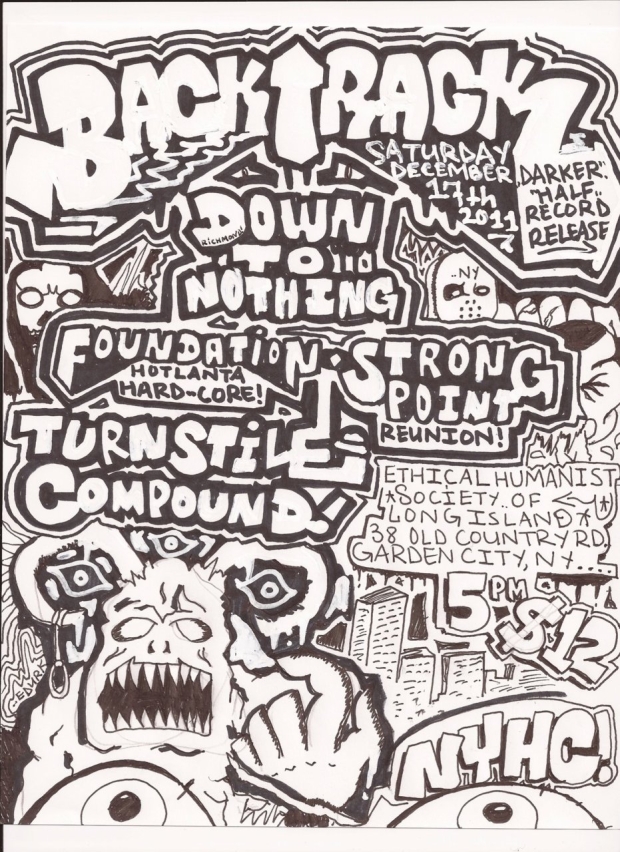 BACKTRACK
SATURDAY
DECEMBER
17th
2011
"DARKER"
"HALF"
RECORD
RELEASE
DOWN
RICHMOND
TO
NOTHING
..NY
FOUNDATION
HOTLANTA
HARD-CORE!
STRONG
POINT
REUNION!
TURNSTILE
COMPOUND!
ETHICAL HUMANIST
*SOCIETY OF
LONG ISLAND*
38 OLD COUNTRY RD
GARDEN CITY, NY....
5 PM
$12
NYHC!